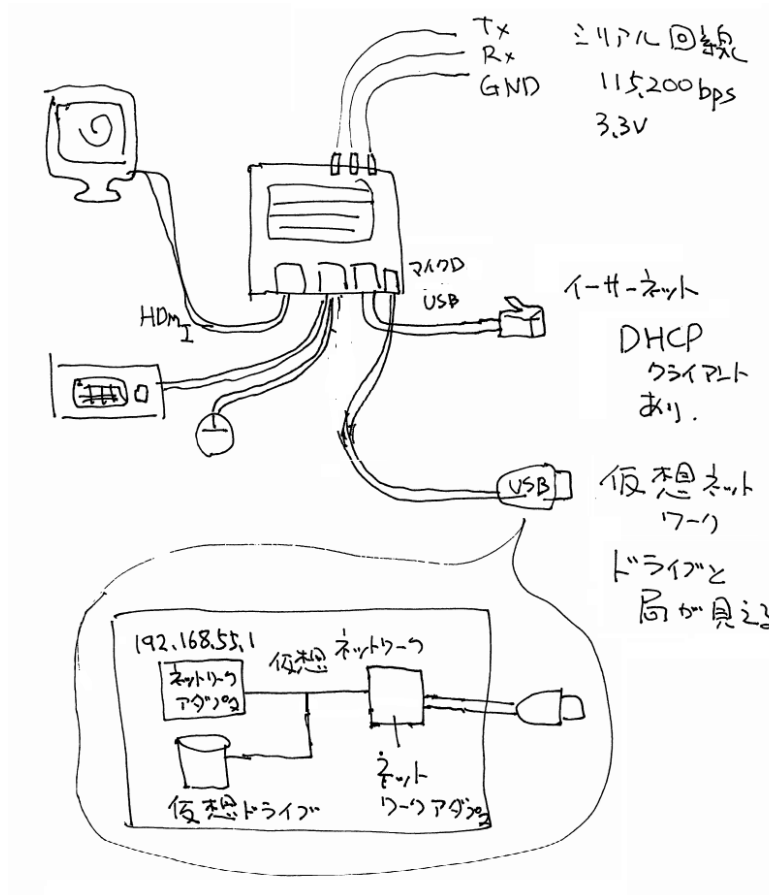 Tx
Rx
GND
シリアル回線
115,200bps
3.3V
マイクロ
USB
HDMI
イーサーネット
DHCP
クライアント
あり.
USB
仮想ネット
ワーク
ドライブと
局が見える
192.168.55.1
仮想ネットワーク
ネットワーク
アダプタ
仮想ドライブ
ネット
ワークアダプタ